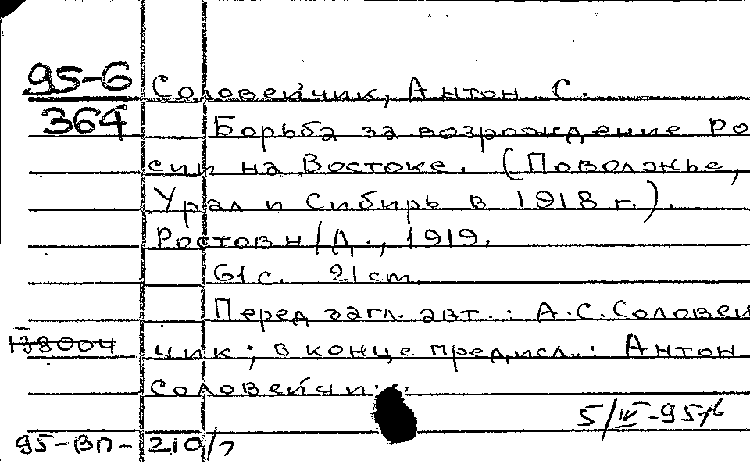 95-6 Соловейчик, Антон С.
364 Борьба за возрождение Ро
сии на Востоке. (Поволжье,
Урал и Сибирь в 1918 г.).
Ростов н/Д., 1919.
61 с. 21 cm.
Перед загл. авт.: А.С.Соловей
138004 чик; в конце предисл.: Антон
Соловейчик.
5/IV-95
95-ВП-210/7